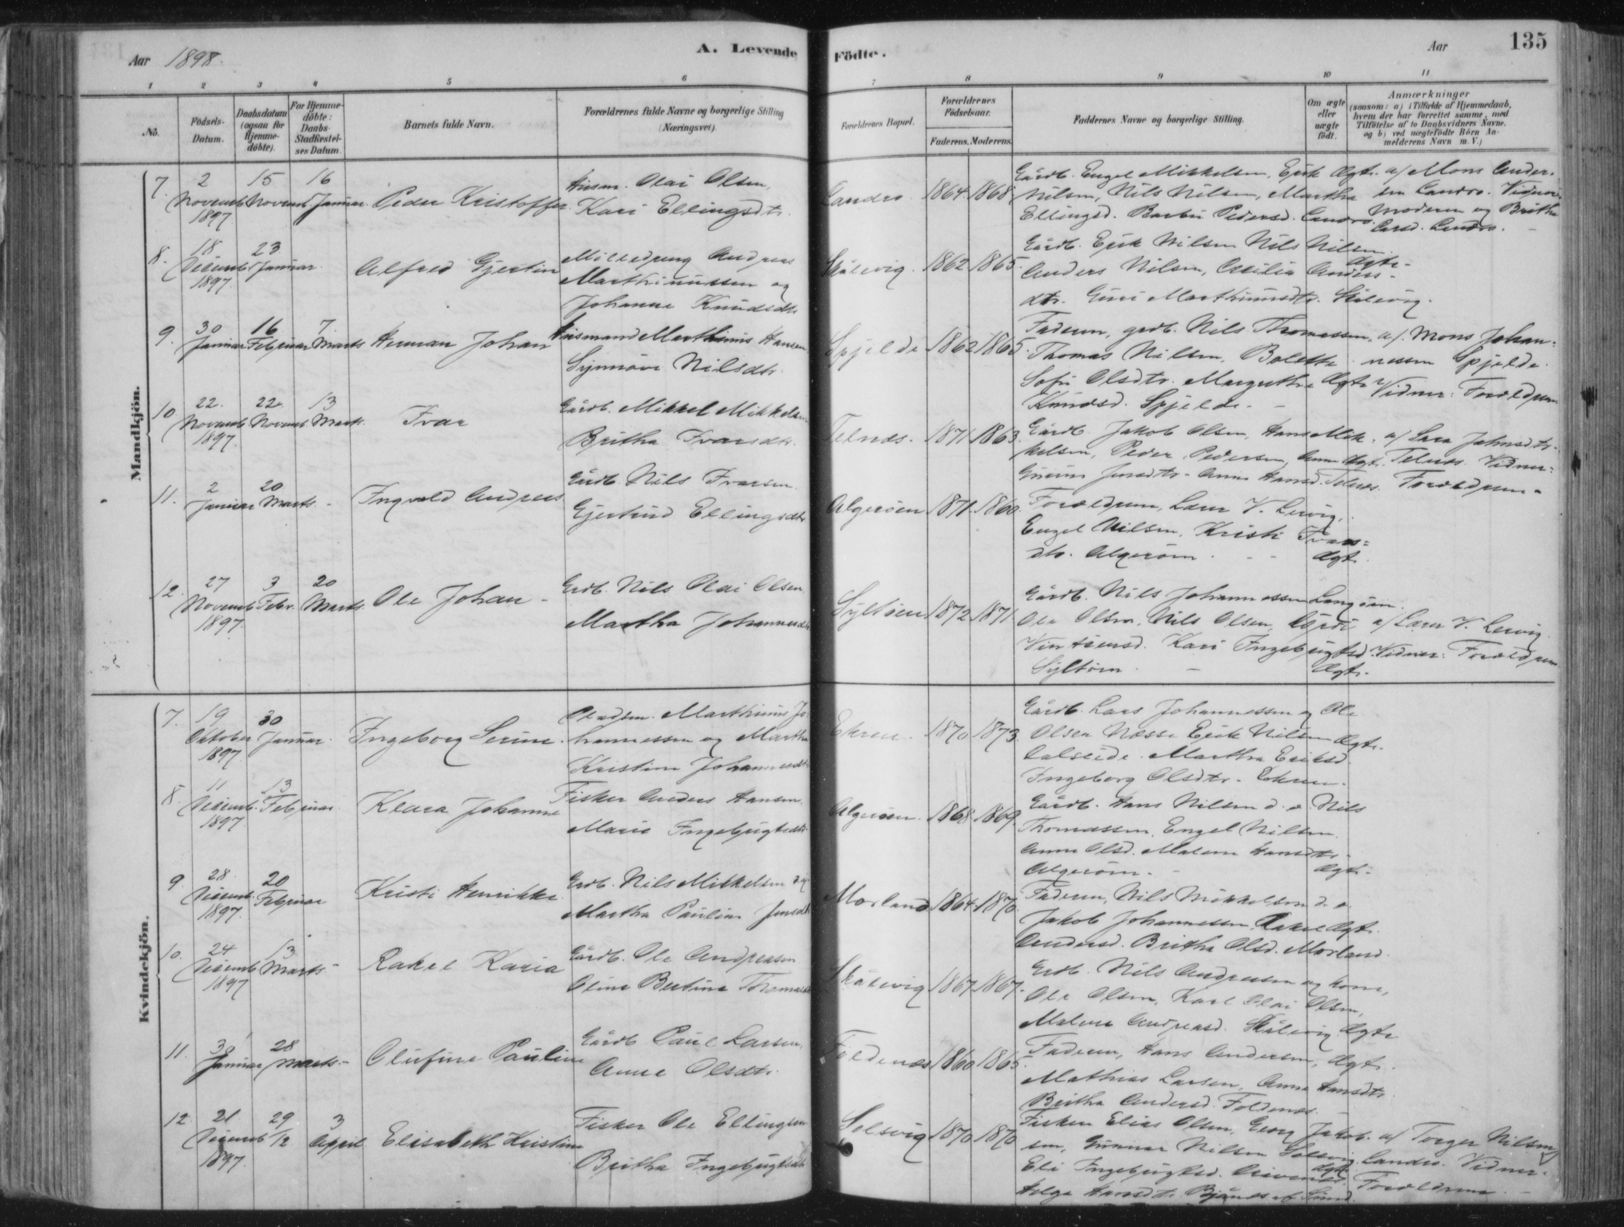 Aar 1898.
A. Levende
Födte.
Aar
135
1 2 3 4 5 6 7 8 9 10 11
No.
Födsels-Datum.
Daabsdatum (ogsaa for Hjemme-döbte).
For Hjemme-döbte: Daabs Stadfæstel-ses Datum.
Barnets fulde Navn.
Forældrenes fulde Navne og borgerlige Stilling (Næringsvei).
Forældrenes Bopæl.
Forældrenes Födselsaar.
Faderens. Moderens.
Faddernes Navne og borgerlige Stilling.
Om ægte eller uægte födt.
Anmærkninger (saasom: a) i Tilfælde af Hjemmedaab, hvem der har forrettet samme, med Tilföielse af to Daabsvidners Navne, og b) ved uægtefödte Börn An-melderens Navn m. V.)
Mandkjön.
7. 2 Novemb 1897 15 Novemb 16 Januar Peder Kristoffer
Husm. Olai Olsen,
Kari Ellingsdtr.
Landro 1864 1868
Gårdb. Engel Mikkelsen, Erik
Nilsen, Nils Nilsen, Martha
Ellingsd. Barbu Pedersd. Landro
Ægte
a/ Mons Ander-
sen Landro. Vidner
Moderen og Britha
8. 18 Desemb 1897 23 Januar Alfred Gjertin
Andreas
Marthinussen og
Johanne Knudsdtr.
Skålevig. 1862 1865
Gårdb. Erik Nilsen Nils Nilsen
Anders Nilsen, Cecilia Anders-
dtr. Guri Marthinusdtr. Skålevig.
Ægte
9. 30 Januar 16 Februar 7 Marts Herman Johan
Husmand Marthinus Hansen
Synnøve Nilsdtr.
Spjelde 1862 1865
Faderen, grdb. Nils Thomassen,
Thomas Nilsen, Bolette
Sofie Olsdtr. Margrethe
Knudsd. Spjelde.
Ægte
a/ Mons Johan-
nessen Spjelde.
Vidner: Forældrene
10 22. Novemb 1897. 22. Novemb 13 Marts Ivar
Gårdb. Mikkel Mikkelsen
Britha Ivarsdtr.
Telnes. 1871 1863
Gårdb Jakob Olsen, Hans Mik-
kelsen, Peder Pedersen,
Jensdtr. Anna Hansd. Telnes.
Ægte
a/ Lava Johnsdtr.
Telnes Vidner:
Forældrene
11. 2 Januar 20 Marts Ingvald Andreas
Gårdb Nils Ivarsen
Gjertrud Ellingsdtr
Algerøen 1871 1860
Forældrene, Lærer V. Lervig,
Engel Nilsen, Kristi Ivars-
dtr. Algerøen
Ægte
12. 27 Novemb 1897 3 Febr. 20 Marts Ole Johan
Grdb. Nils Olai Olsen
Martha Johannesdtr
Syltøen 1872 1871
Gårdb. Nils Johannessen Langøen
Ole Olsen, Nils Olsen,
Kari Ingebrigtsd.
Syltøen
Ægte
a/ Lærer V. Lervig
Vidner: Forældrene
Kvindekjön.
7. 19 Oktober 1897 30 Januar Ingeborg Serine
Pladsm. Marthinus Jo-
hannessen og Martha
Kristine Johannesdtr
Ekren 1870 1873
Gårdb. Lars Johannessen og Ole
Olsen Næsse Erik Nilsen
Martha Eriksd
Ingeborg Olsdtr. Ekren.
Ægte
8. 11 Desemb. 1897 13 Februar Klara Johanne
Fisker Anders Hansen
Marie Ingebrigtsdtr.
Algerøen 1868 1869
Gårdb. Hans Nilsen d. e. Nils
Thomassen, Engel Nilsen
Anna Olsd. Malene Hansdtr.
Algerøen.
Ægte
9 28 Desemb. 1897 20 Februar Kristi Henrikke
Grdb. Nils Mikkelsen og
Martha Pauline Jensdtr
Morland 1864 1870
Faderen, Nils Mikkelsen d. e.
Jakob Johannessen, Rakel
Andersd. Britha Olsd. Morland
Ægte
10. 24 Desemb 1897 13 Marts Rakel Karia
Gårdb. Ole Andreassen
Oline Bertine Thomasd
Skålevig 1867 1867
Grdb. Nils Andreassen og kone,
Ole Olsen, Karl Olai Olsen,
Malene Andreasd. Skålevig
Ægte
11. 30 Januar 28 Marts Olufine Pauline
Gårdb Paul Larsen,
Anne Olsdtr.
Foldenes 1860 1865
Faderen, Hans Andersen,
Mathias Larsen, Anna Hansdtr.
Britha Andersd Foldenes
Ægte
12 21 Desemb 1897 29/12 3 April Elisabeth Kristine
Fisker Ole Ellingsen
Britha Ingebrigtsdtr
Solsvig 1870 1870
Fisker Elias Olsen, Georg Jakob-
sen, Gunnar Nilsen Solsvig
Eli Ingebrigtsd.
Helga Hansdtr.
Ægte
a/ Torger Nilsen
Landro. Vidner:
Forældrene